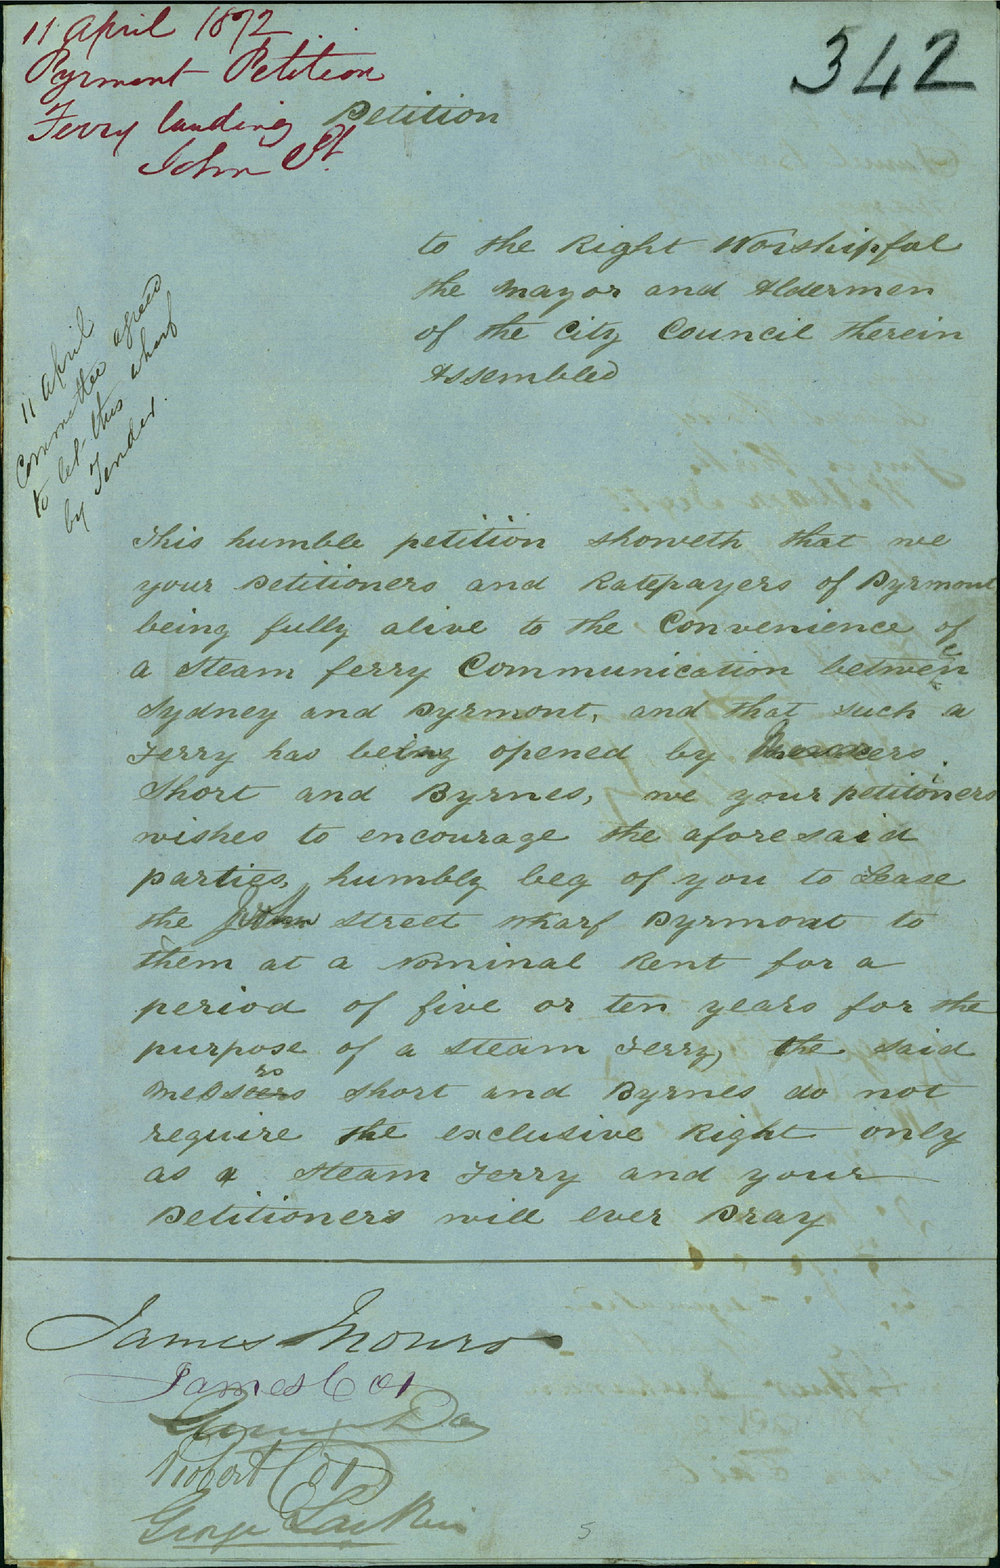 11 April 1872
Pyrmont Petition
Ferry landing
John St.
342
Petition
to the Right Worshipful
the Mayor and Aldermen
of the City Council therein
Assembled
11 April
Committee agreed
to let this wharf
by Tender.
This humble petition showeth that we
your Petitioners and Ratepayers of Pyrmont
being fully alive to the Convenience of
a Steam ferry Communication between
Sydney and Pyrmont, and that such a
Ferry has being opened by
Short and Byrnes, we your petitioners
wishes to encourage the aforesaid
parties, humbly beg of you to Lease
the John Street Wharf Pyrmont to
them at a Nominal Rent for a
period of five or ten years for the
purpose of a Steam Ferry, the said
Messrs Short and Byrnes do not
require the exclusive Right only
as a Steam Ferry and your
Petitioners will ever Pray
James Monro
James Cox
Day
Robert Cox
George Larkin
5